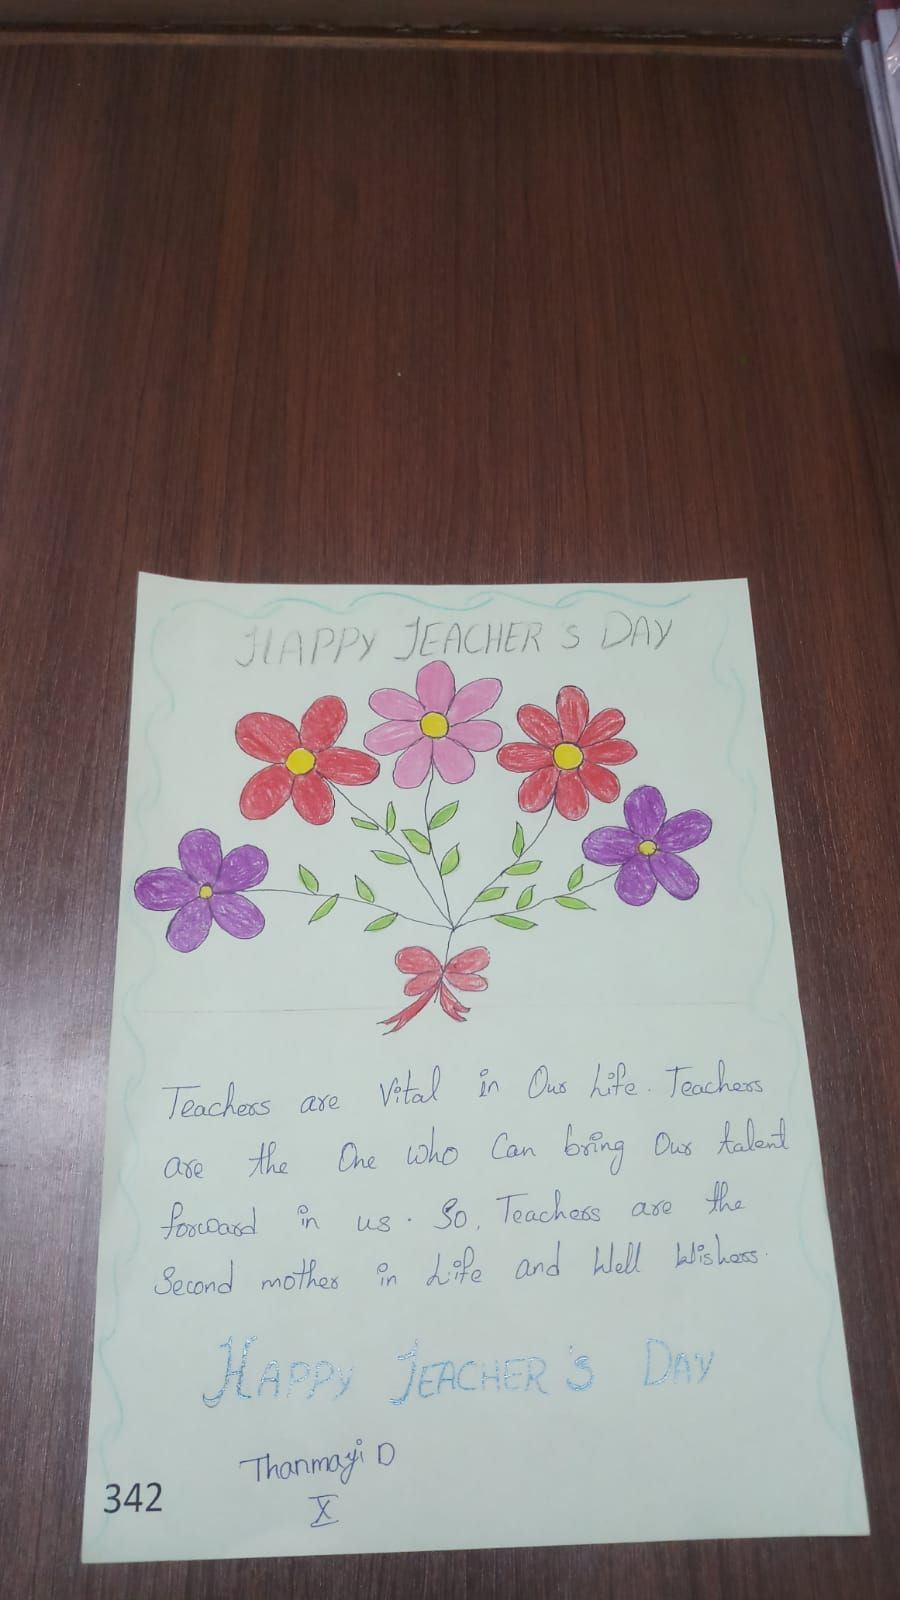 HAPPY TEACHER'S DAY
Teachers are Vital in Our Life. Teachers
are the One who Can bring Our talent
forward in us. So, Teachers are the
Second mother in Life and Well Wishers.
HAPPY TEACHER'S DAY
Thanmayi D
X
342